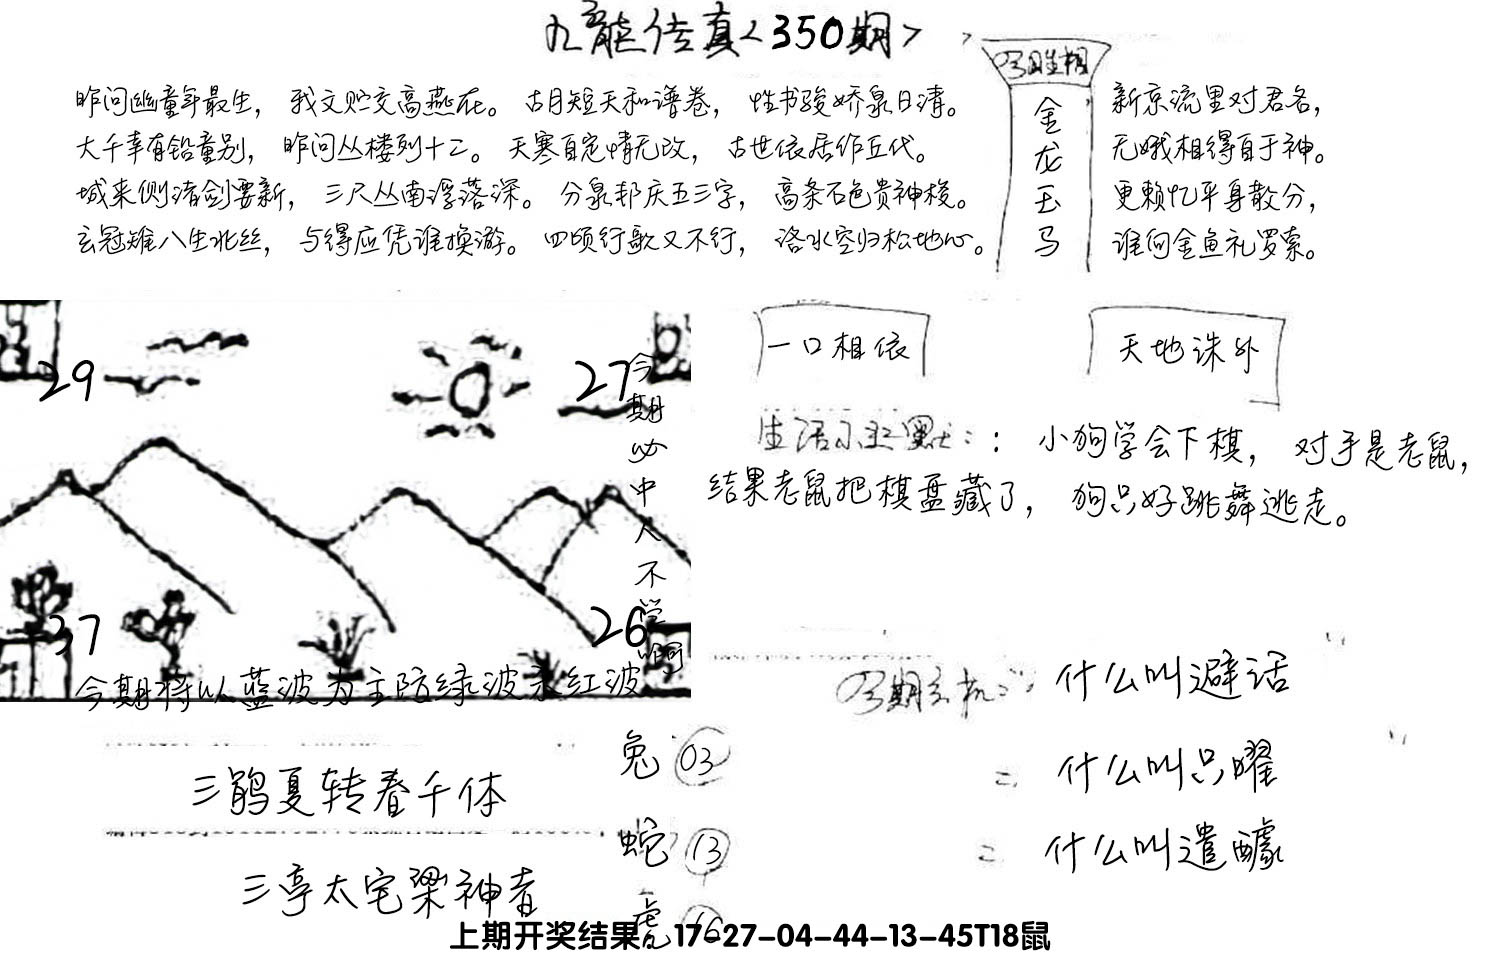 九龙传真<350期>
昨问幽童年最生，我文贮交高燕在。古月短天和谱卷，性书骏娇泉日清。
大千幸有铅童别，昨问丛楼列十二。天寒自定情无改，古世依居作丘代。
城来侧渚剑要新，三尺丛南浮落深。分泉邦庆五三字，高条石色贵神梭。
玄冠雉八生兆丝，与得应凭谁换游。四顷行歌又不行，洛水空归松地心。
金
龙
玉
马
新京流里对君名，
无娥相得自于神。
更赖忆平身散分，
谁向金鱼礼罗索。
29
27
37
26
今期必中人不学啊
今期将以蓝波为主防绿波杀红波
一口相依
天地诛外
生活小幽默：：小狗学会下棋，对手是老鼠，
结果老鼠把棋盘藏了，狗只好跳舞逃走。
什么叫避话
什么叫只曜
什么叫遣醵
三鹃夏转春千体
三亭太宅梁神者
兔 03
蛇 13
虎 16
上期开奖结果：17-27-04-44-13-45T18鼠